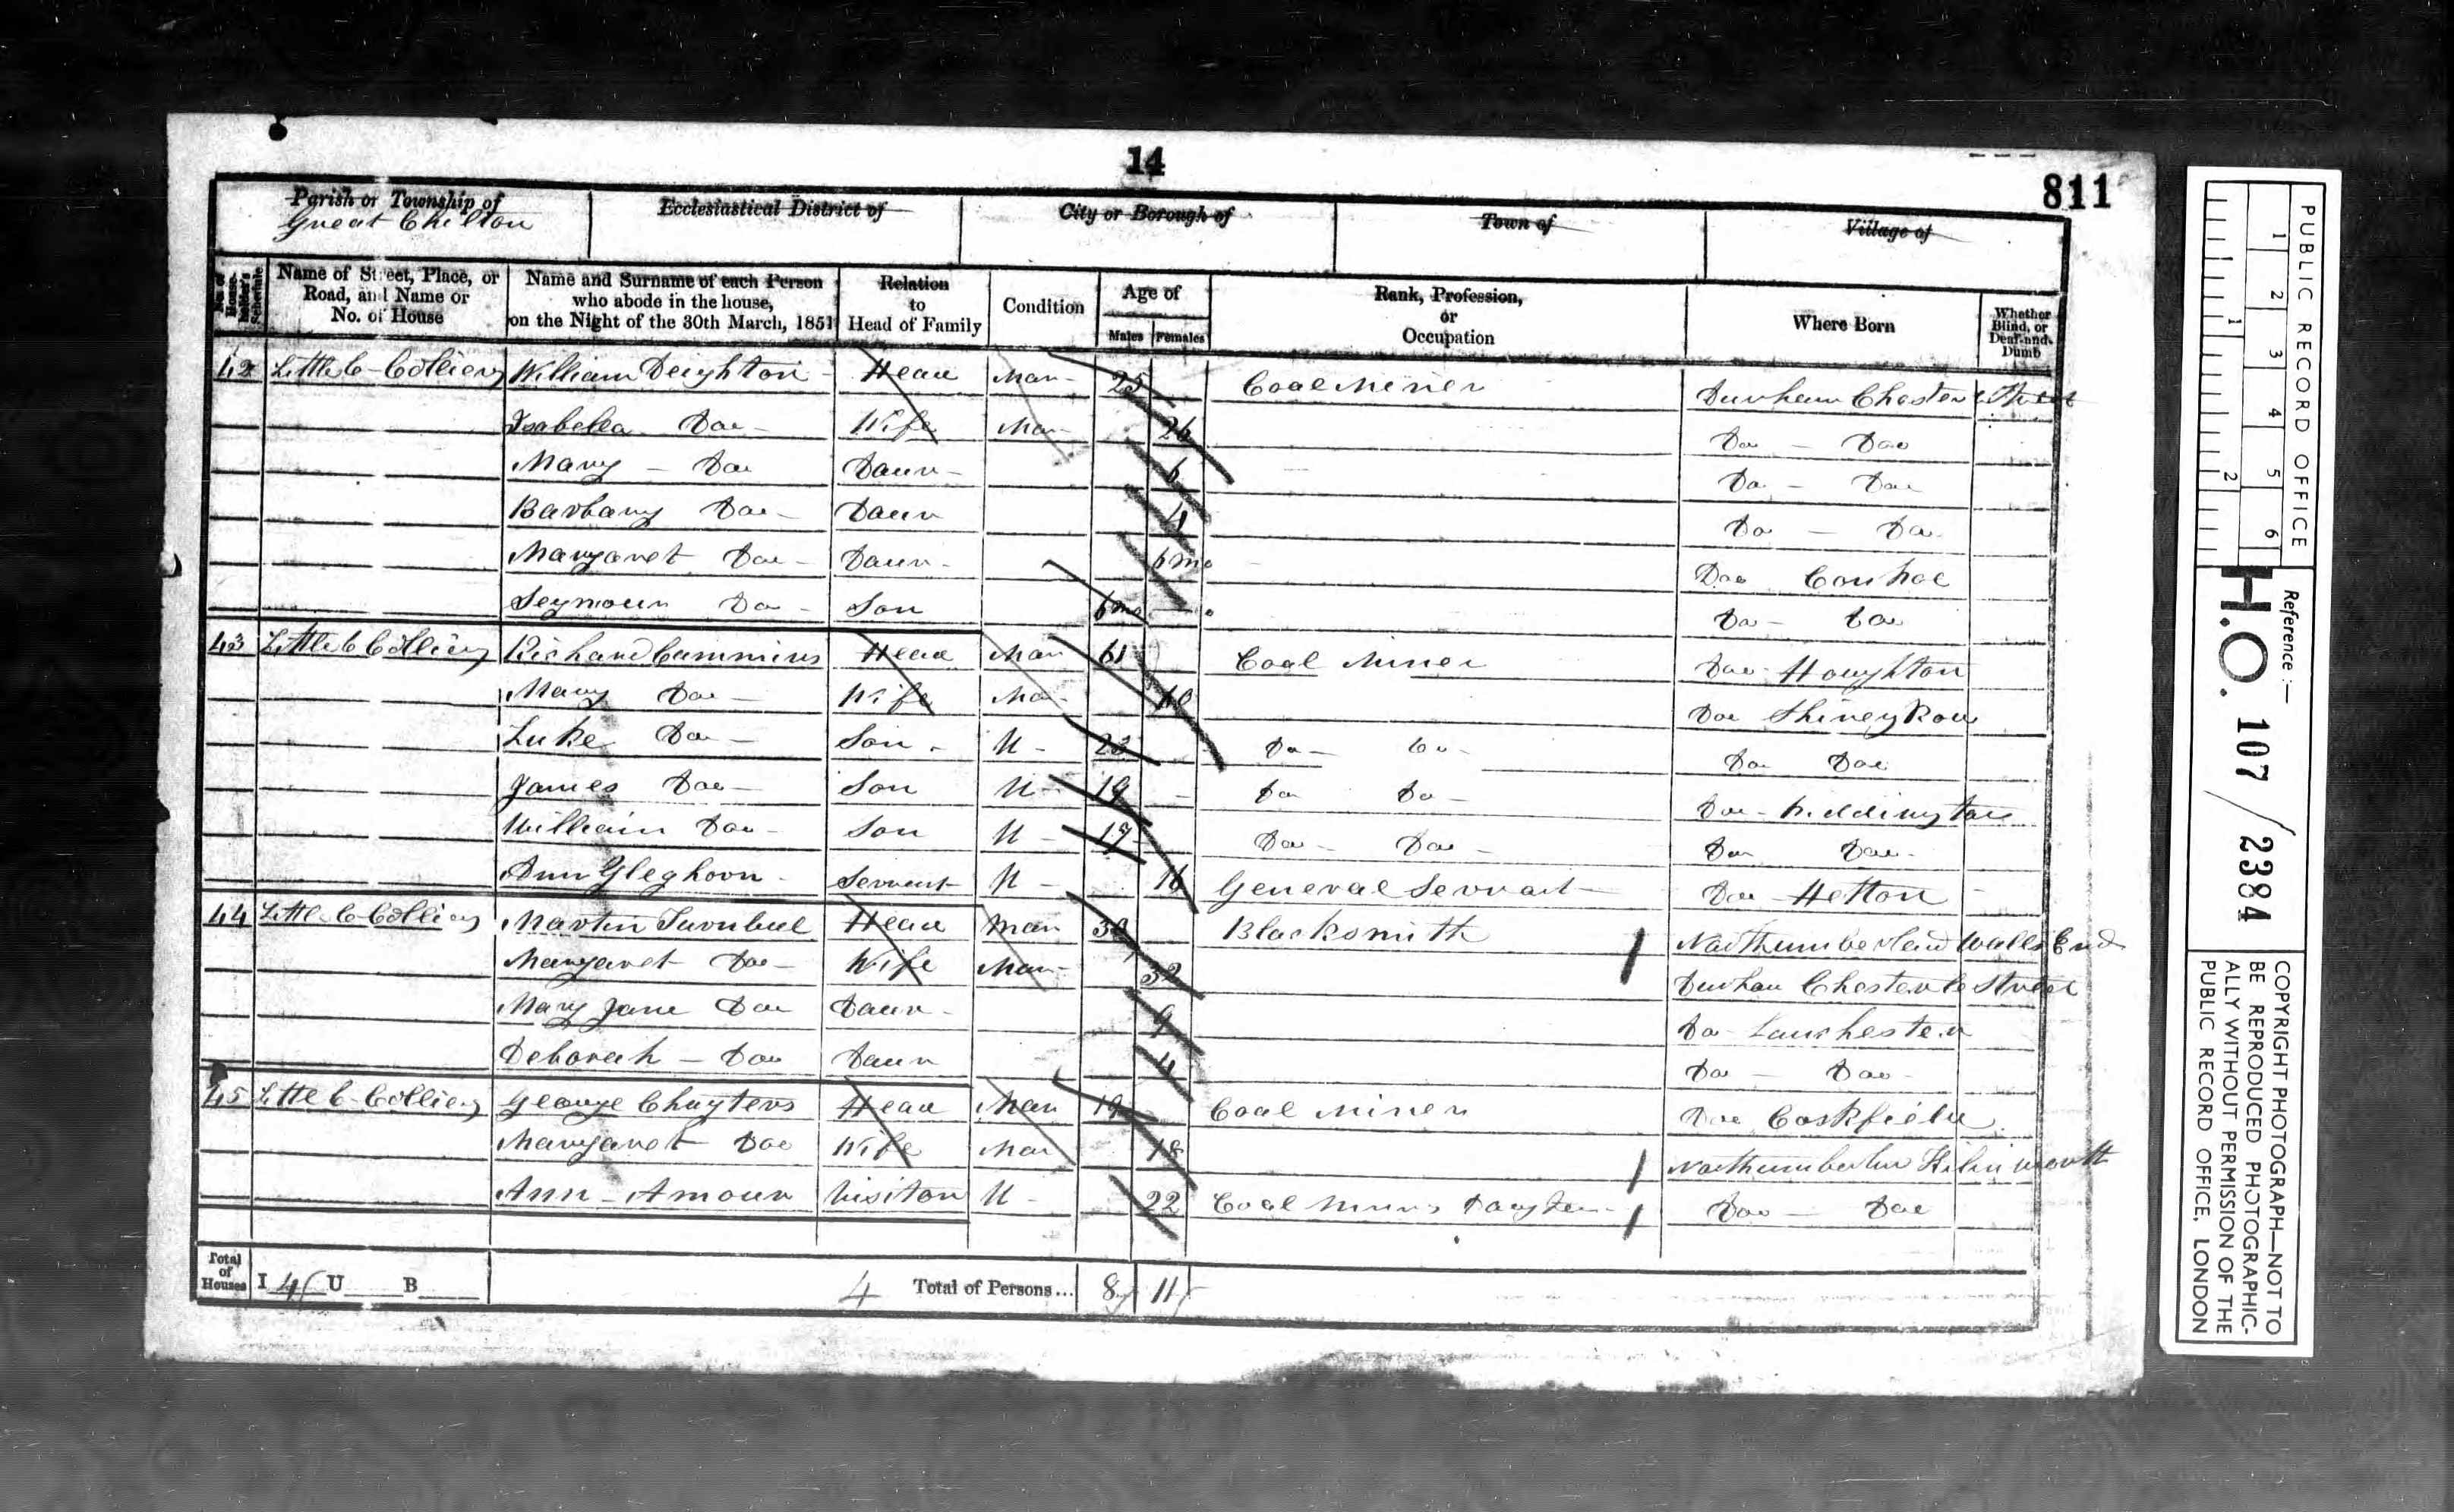 14
811
Parish or Township of
Great Chilton
Ecclesiastical District of
City or Borough of
Town of
Village of
No. of House-holder's Schedule
Name of Street, Place, or Road, and Name or No. of House
Name and Surname of each Person who abode in the house, on the Night of the 30th March, 1851
Relation to Head of Family
Condition
Age of
Males Females
Rank, Profession, or Occupation
Where Born
Whether Blind, or Deaf-and-Dumb
42 Little C- Colliery William Deighton Head Mar- 25 Coal Miner Durham Chester le Street
Isabella Do- Wife Mar- 26 Do - Do
Mary - Do Daur- 6 Do - Do
Barbary Do- Daur 4 Do - Do
Margaret Do- Daur- 6 mo Do Coxhoe
Seymour Do- Son 6 mo Do- Do
43 Little C Colliery Richard Cummins Head Mar 61 Coal Miner Do- Houghton
Mary Do- Wife Mar- 60 Do Shiney Row
Luke Do- Son U- 23 Do- Do- Do Do
James Do- Son U- 19 Do Do- Do-
William Do- Son U- 17 Do- Do- Do Do-
Ann Gleghorn Servant U- 16 General Servant Do- Hetton
44 Little C- Colliery Martin Turnbull Head Mar Blacksmith Northumberland Walls End
Margaret Do- Wife Mar- 32 Durham Chester le Street
Mary Jane Do Daur- 9 Do- Lanchester
Deborah - Do Daur 4 Do - Do-
45 Little C- Colliery George Chaytors Head Mar 19 Coal Miner Do Cockfield
Margaret Do Wife Mar 18 Northumberland
Ann - Amour Visitor U- 22 Coal Miners Daughter Do - Do
Total of Houses I 4 U B 4 Total of Persons... 8 11
PUBLIC RECORD OFFICE
1 2 3 4 5 6
1 2
Reference:-
H.O. 107 / 2384
COPYRIGHT PHOTOGRAPH—NOT TO
BE REPRODUCED PHOTOGRAPHIC-
ALLY WITHOUT PERMISSION OF THE
PUBLIC RECORD OFFICE, LONDON